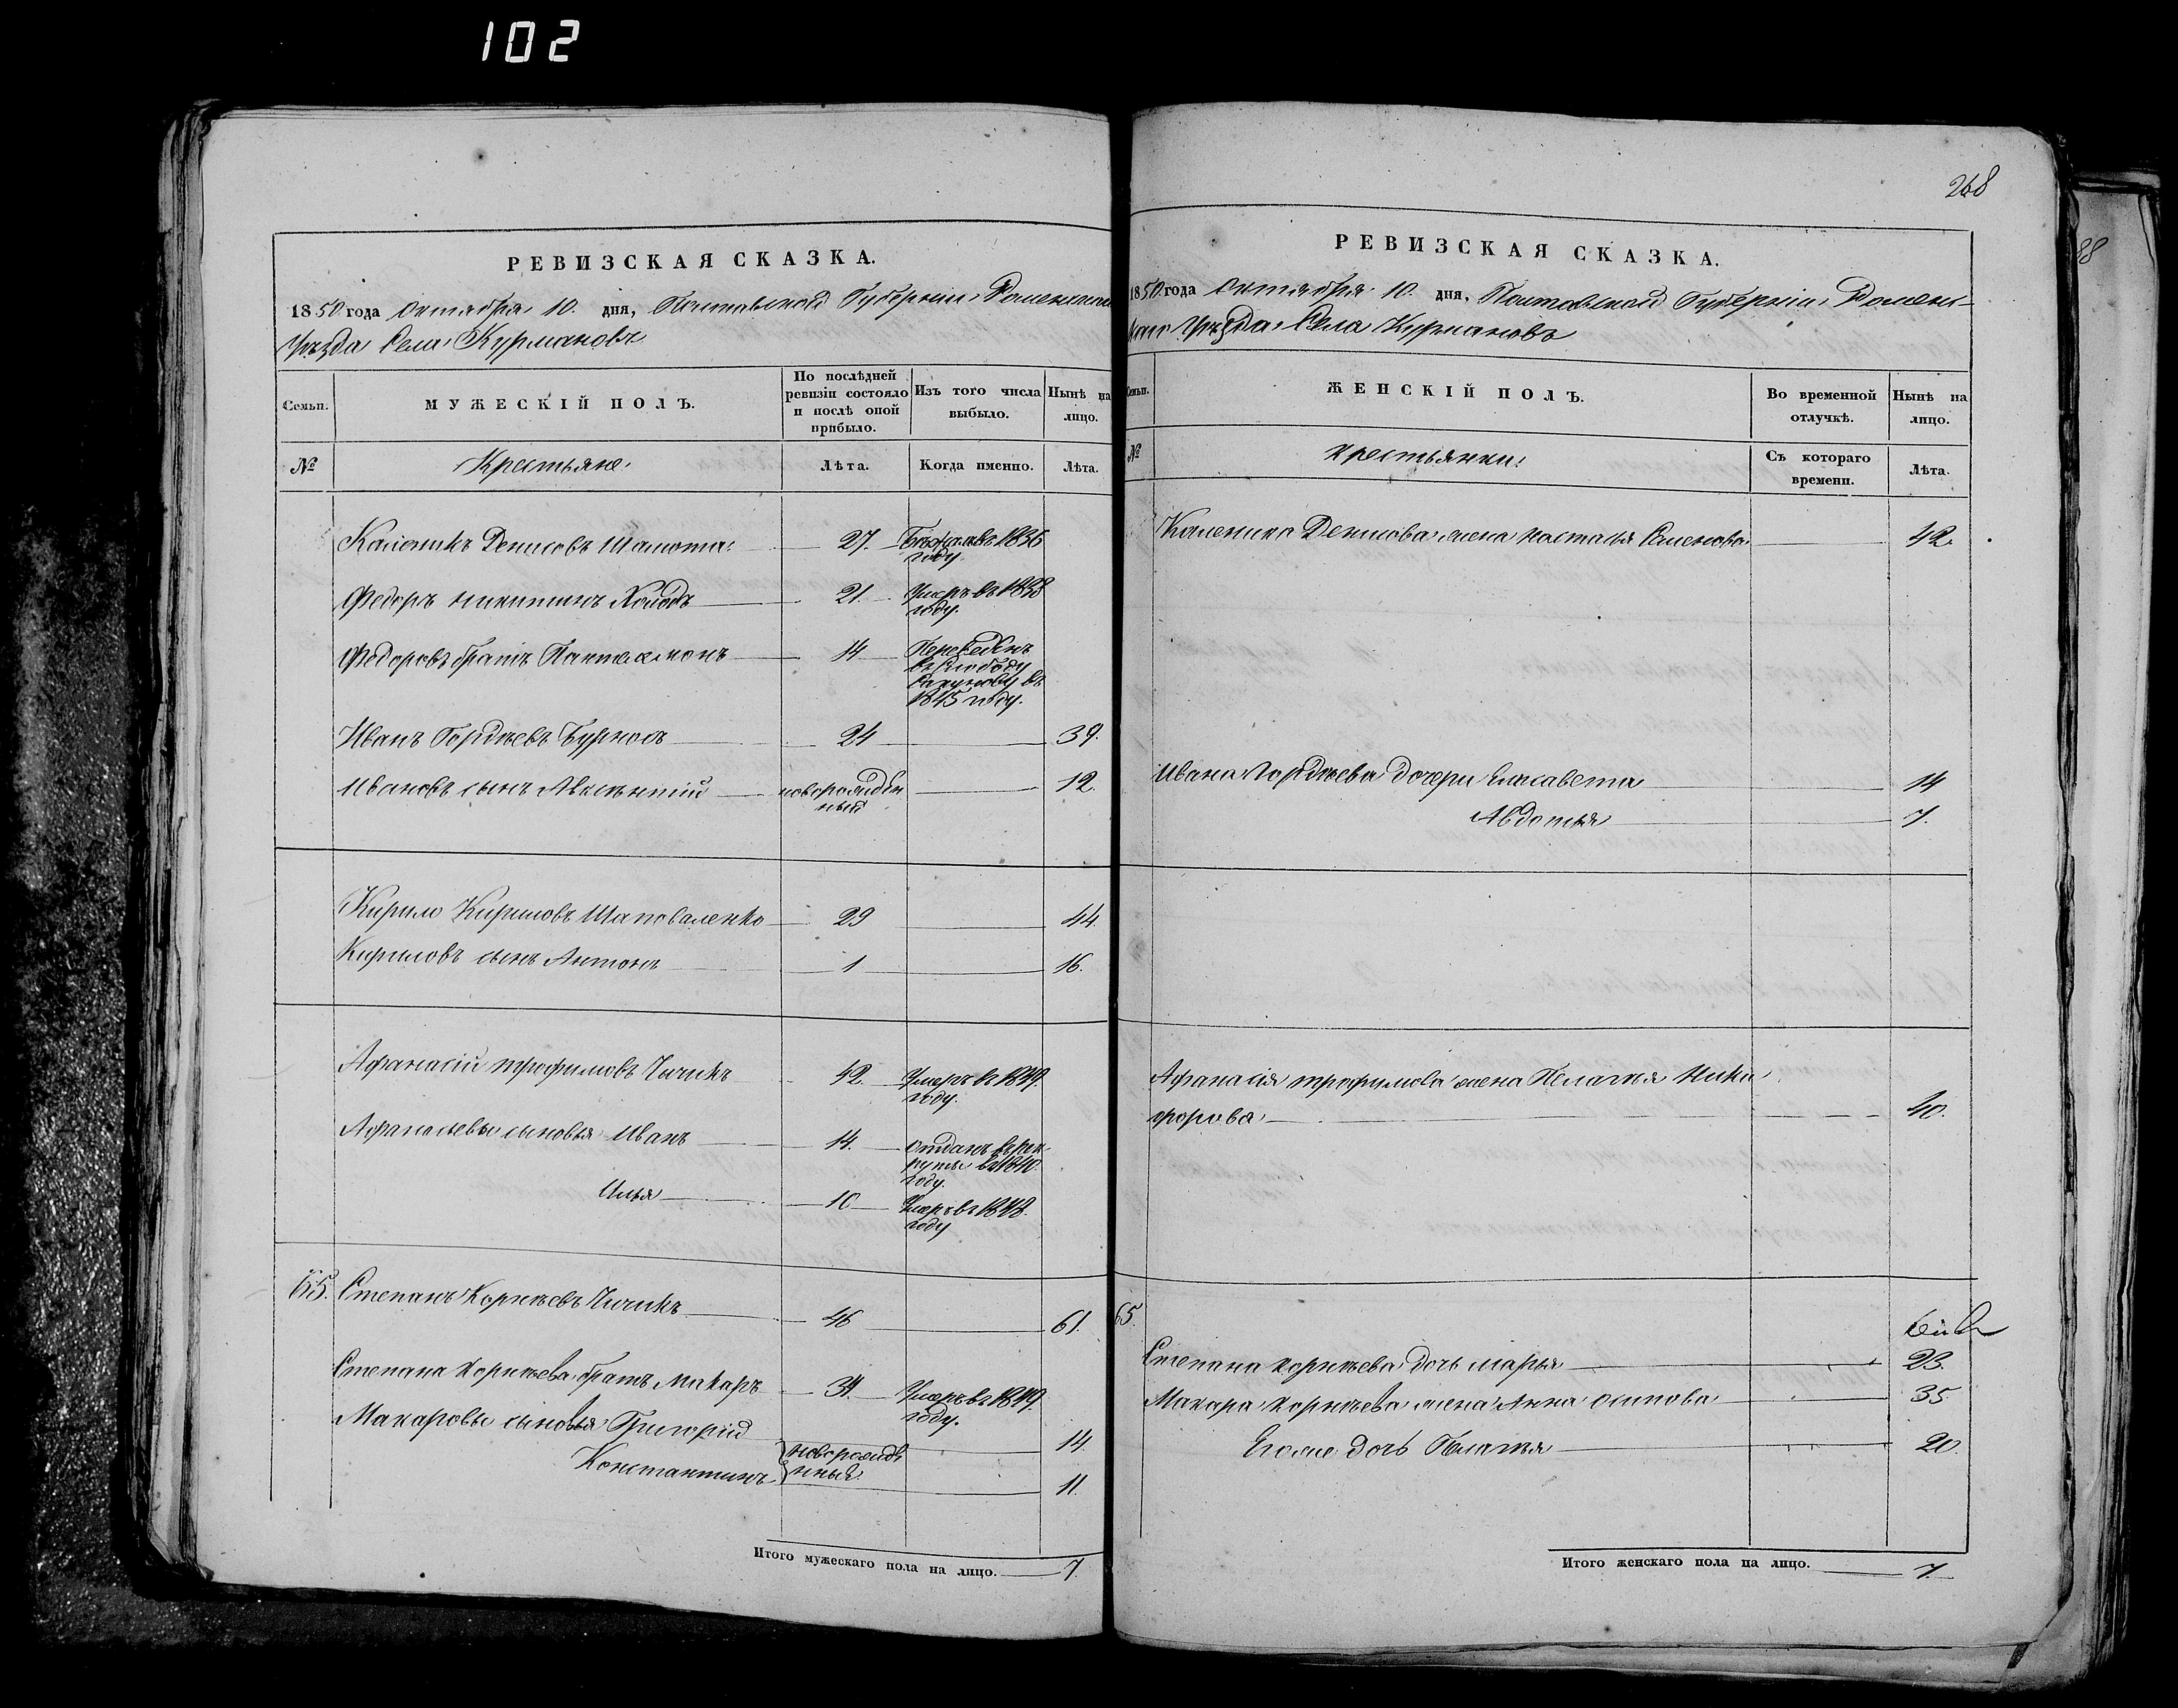 102
268
88
РЕВИЗСКАЯ СКАЗКА.
1850 года Октября 10. дня, Полтавской Губерніи Роменскаго
Уѣзда Села Курмановъ
Семьи.
МУЖЕСКІЙ ПОЛЪ.
По послѣдней ревизіи состояло и послѣ оной прибыло.
Изъ того числа выбыло.
Нынѣ на лицо.
№
Крестьяне.
Лѣта.
Когда именно.
Лѣта.
Каленикъ Денисовъ Шамота 27. Бѣжалъ въ 1836
году.
Федоръ Никитинъ Холодъ 21. Умеръ въ 1838
году.
Федоровъ братъ Пантелимонъ 14 Переведенъ
въ слободу
въ
1845 году.
Иванъ Гордѣевъ Бурносъ 24 39.
Ивановъ сынъ Авксентій новорожден 12.
ный
Кирило Кириловъ Шаповаленко 29 44.
Кириловъ сынъ Антонъ 1 16.
Афанасій Трофимовъ Чичикъ 42. Умеръ въ 1849
году.
Афанасьевы сыновья Иванъ 14. отданъ въ рек
руты въ 1840
году.
Илья 10 Умеръ въ 1848
году
65. Степанъ Корнѣевъ Чичикъ 46 61.
Степана Корнѣева братъ Макаръ 34. Умеръ въ 1849
году.
Макаровы сыновья Григорій 14.
новорожде
Константинъ нные 11.
Итого мужескаго пола на лицо. 7.
РЕВИЗСКАЯ СКАЗКА.
1850 года Октября 10. дня, Полтавской Губерніи Ромен-
скаго Уѣзда Села Курмановъ
Семьи.
ЖЕНСКІЙ ПОЛЪ.
Во временной отлучкѣ.
Нынѣ на лицо.
№
Крестьянки.
Съ котораго времени.
Лѣта.
Каленика Денисова жена Настасья Семенова 42.
Ивана Гордѣева дочери Елисавета 14
Авдотья 7.
Афанасія Трофимова жена Пелагея Ники
форова 40.
65.
Степана Корнѣева дочь Марья 23.
Макара Корнѣева жена Анна Осипова 35
Его же дочь Пелагея 20.
Итого женскаго пола на лицо. 7.